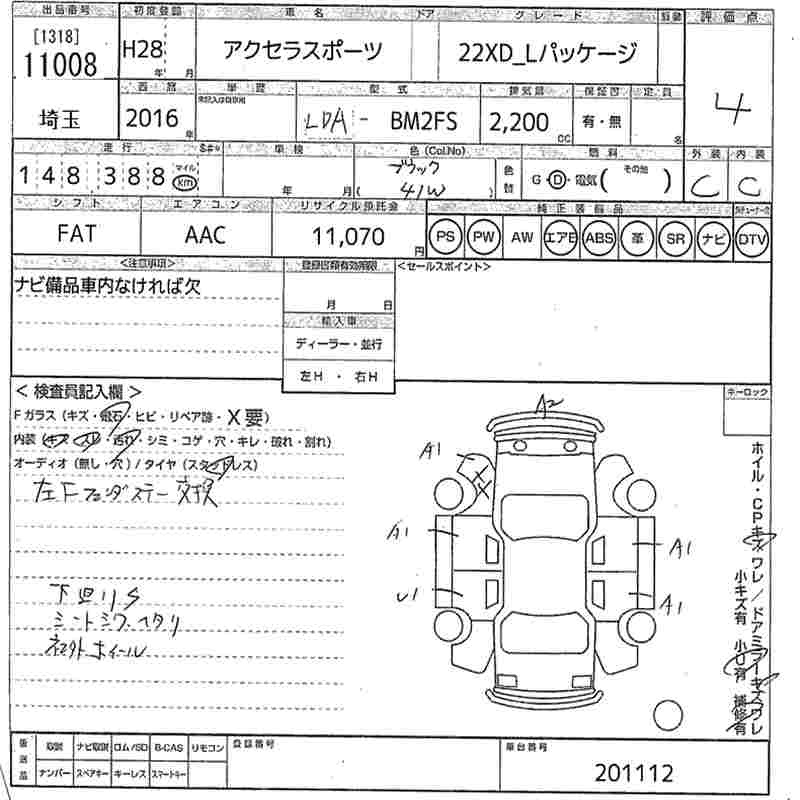 出品番号 初度登録 車名 ドア グレード 評価点
[1318]
11008 H28 年 月 アクセラスポーツ 22XD_Lパッケージ 4
西暦 車歴 型式 排気量 保証書 定員
埼玉 2016 年 LDA - BM2FS 2,200 CC 有・無 名
走行 S#* 車検 色(Col.No) 燃料 外装 内装
148,388 マイル km 年 月 ブラック 41W 色替 G・D・電気( その他 ) C C
シフト エアコン リサイクル預託金 純正装備品
FAT AAC 11,070 円 PS PW AW エアB ABS 革 SR ナビ DTV
<注意事項> 登録書類有効期限 <セールスポイント>
ナビ備品車内なければ欠
月 日
輸入車
ディーラー・並行
左H ・ 右H
< 検査員記入欄 > キーロック
Fガラス(キズ・飛石・ヒビ・リペア跡・X要)
内装(キズ・スレ・汚れ・シミ・コゲ・穴・キレ・破れ・割れ)
オーディオ(無し・穴)/タイヤ(スタッドレス)
左Fフェンダステー交換
下回りS
シートシワ、ヘタリ
社外ホイール
A2
A1
A1 A1
U1 A1
ホイル・CPキズ ワレ/ドアミラーキズワレ
小キズ有 小U有 補修有
後送品 取説 ナビ取説 ロム/SD B-CAS リモコン 登録番号 車台番号
ナンバー スペアキー キーレス スマートキー 201112